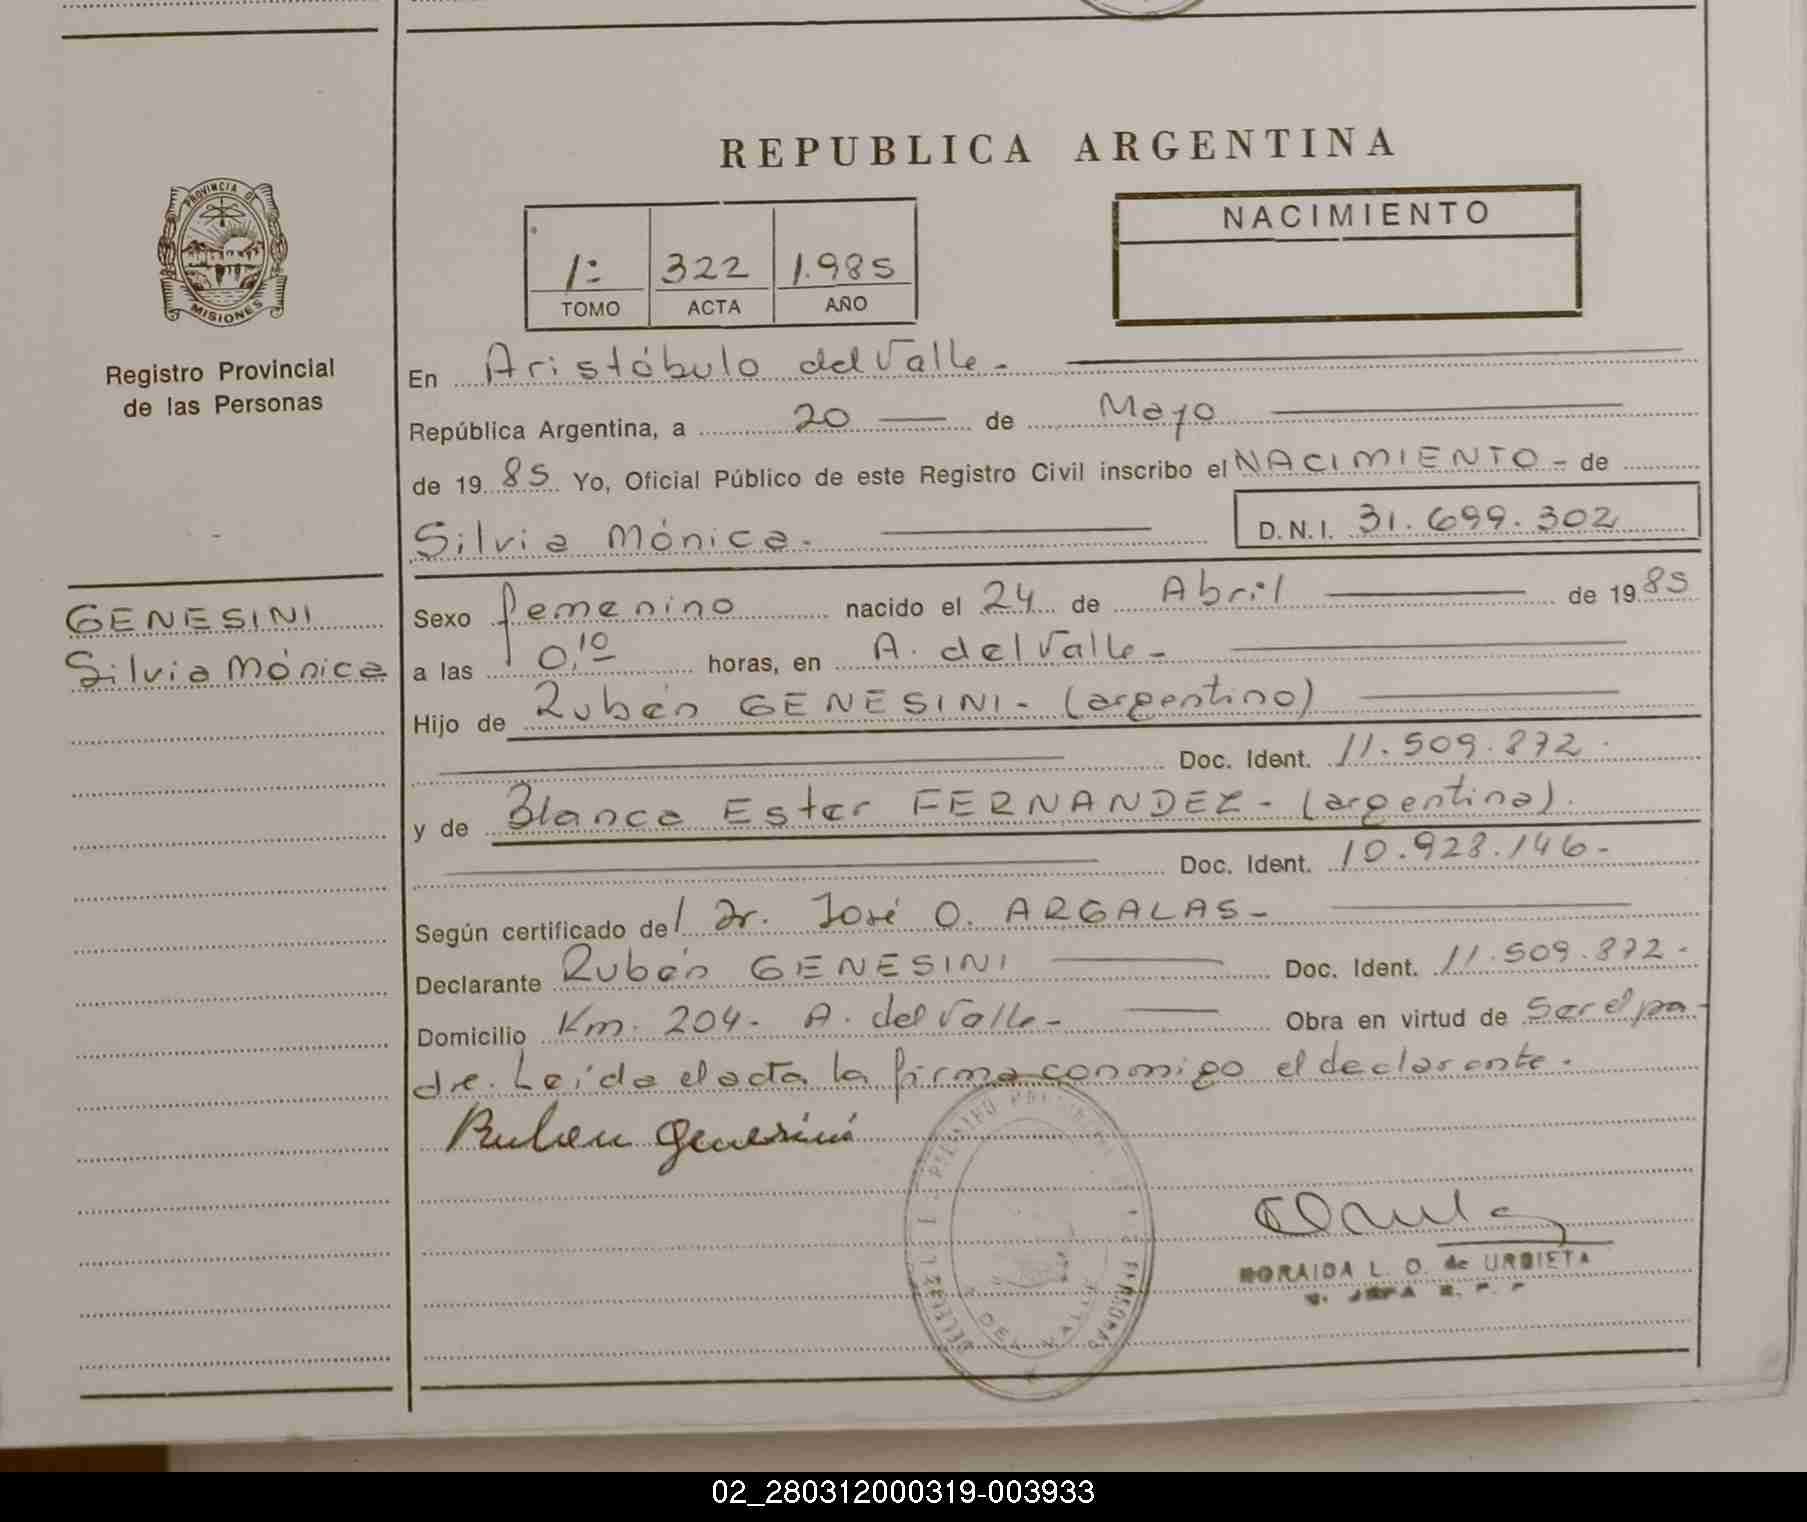 REPUBLICA ARGENTINA
PROVINCIA DE
MISIONES
Registro Provincial
de las Personas
1º 322 1.985
TOMO ACTA AÑO
NACIMIENTO
En Aristóbulo del Valle.-
República Argentina, a 20 de Mayo
de 1985 Yo, Oficial Público de este Registro Civil inscribo el NACIMIENTO - de
Silvia Mónica.
D.N.I. 31.699.302
GENESINI
Silvia Mónica
Sexo femenino nacido el 24 de Abril de 1985
a las 0,10 horas, en A. del Valle -
Hijo de Rubén GENESINI - (argentino)
Doc. Ident. 11.509.872.
y de Blanca Ester FERNANDEZ - (argentina).
Doc. Ident. 10.928.146-
Según certificado del Dr. José O. ARGALAS -
Declarante Rubén GENESINI Doc. Ident. 11.509.872-
Domicilio Km. 204- A. del Valle - Obra en virtud de ser el pa-
dre. Leída el acta la firma conmigo el declarante.
Ruben Genesini
DEL VALLE
L. O. de URBIETA
02_280312000319-003933